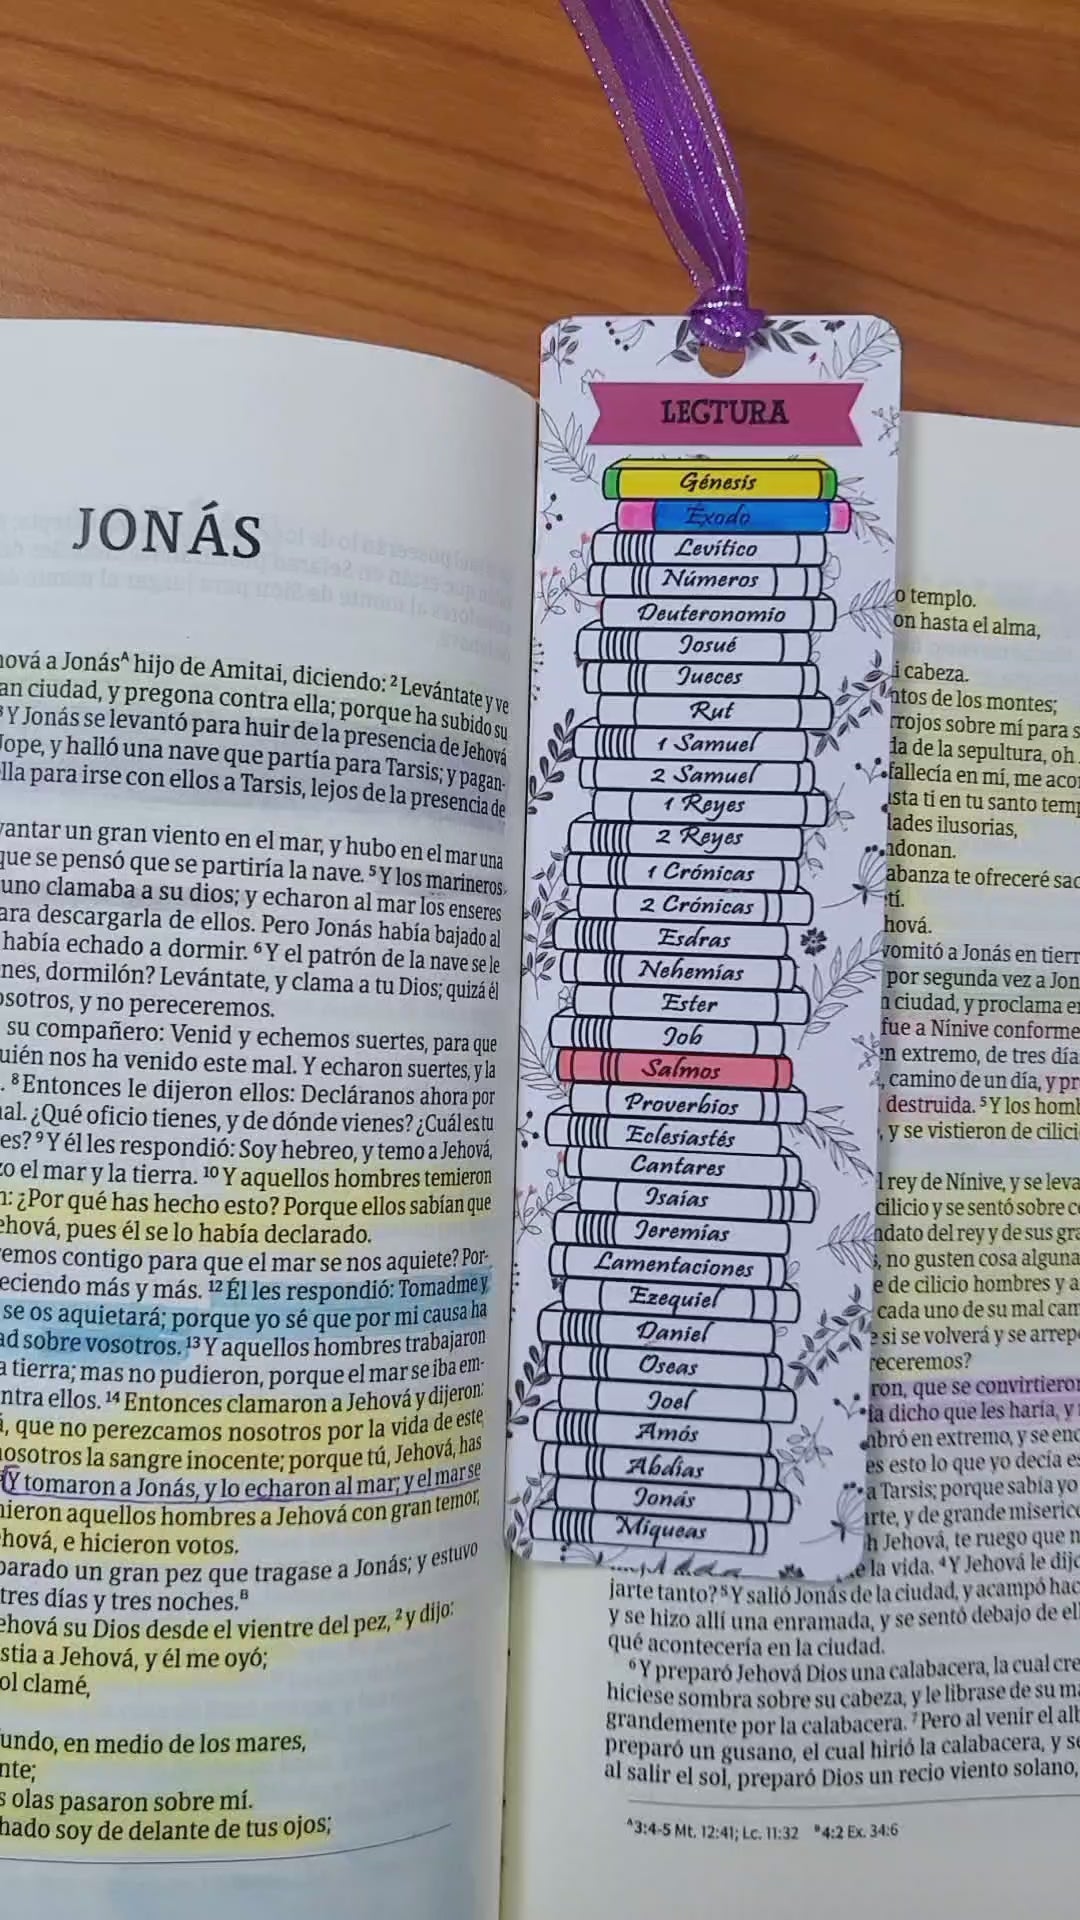 JONÁS
hová a Jonásᴬ hijo de Amitai, diciendo: ² Levántate y ve
an ciudad, y pregona contra ella; porque ha subido su
³ Y Jonás se levantó para huir de la presencia de Jehová
Jope, y halló una nave que partía para Tarsis; y pagan-
lla para irse con ellos a Tarsis, lejos de la presencia de
vantar un gran viento en el mar, y hubo en el mar una
que se pensó que se partiría la nave. ⁵ Y los marineros
uno clamaba a su dios; y echaron al mar los enseres
ara descargarla de ellos. Pero Jonás había bajado al
había echado a dormir. ⁶ Y el patrón de la nave se le
nes, dormilón? Levántate, y clama a tu Dios; quizá él
osotros, y no pereceremos.
su compañero: Venid y echemos suertes, para que
uién nos ha venido este mal. Y echaron suertes, y la
. ⁸ Entonces le dijeron ellos: Decláranos ahora por
nal. ¿Qué oficio tienes, y de dónde vienes? ¿Cuál es tu
es? ⁹ Y él les respondió: Soy hebreo, y temo a Jehová,
zo el mar y la tierra. ¹⁰ Y aquellos hombres temieron
n: ¿Por qué has hecho esto? Porque ellos sabían que
ehová, pues él se lo había declarado.
emos contigo para que el mar se nos aquiete? Por-
eciendo más y más. ¹² Él les respondió: Tomadme y
se os aquietará; porque yo sé que por mi causa ha
ad sobre vosotros. ¹³ Y aquellos hombres trabajaron
a tierra; mas no pudieron, porque el mar se iba em-
ntra ellos. ¹⁴ Entonces clamaron a Jehová y dijeron:
á, que no perezcamos nosotros por la vida de este
nosotros la sangre inocente; porque tú, Jehová, has
Y tomaron a Jonás, y lo echaron al mar; y el mar se
mieron aquellos hombres a Jehová con gran temor,
hová, e hicieron votos.
parado un gran pez que tragase a Jonás; y estuvo
tres días y tres noches.ᴮ
ehová su Dios desde el vientre del pez, ² y dijo:
stia a Jehová, y él me oyó;
ol clamé,
undo, en medio de los mares,
nte;
s olas pasaron sobre mí.
hado soy de delante de tus ojos;
LECTURA
Génesis
Éxodo
Levítico
Números
Deuteronomio
Josué
Jueces
Rut
1 Samuel
2 Samuel
1 Reyes
2 Reyes
1 Crónicas
2 Crónicas
Esdras
Nehemías
Ester
Job
Salmos
Proverbios
Eclesiastés
Cantares
Isaías
Jeremías
Lamentaciones
Ezequiel
Daniel
Oseas
Joel
Amós
Abdías
Jonás
Miqueas
o templo.
on hasta el alma,
i cabeza.
ntos de los montes;
rrojos sobre mí para s
da de la sepultura, oh
fallecía en mí, me acor
asta ti en tu santo temp
dades ilusorias,
ndonan.
abanza te ofreceré sac
tí.
hová.
vomitó a Jonás en tierr
por segunda vez a Jon
n ciudad, y proclama en
fue a Nínive conforme
en extremo, de tres día
, camino de un día, y pr
destruida. ⁵ Y los homb
, y se vistieron de cilici
l rey de Nínive, y se leva
cilicio y se sentó sobre ce
ndato del rey y de sus gra
s, no gusten cosa alguna
e de cilicio hombres y a
cada uno de su mal cam
e si se volverá y se arrepe
receremos?
ron, que se convirtieron
ía dicho que les haría, y n
mbró en extremo, y se eno
es esto lo que yo decía es
a Tarsis; porque sabía yo
rte, y de grande miserico
h Jehová, te ruego que m
e la vida. ⁴ Y Jehová le dijo
jarte tanto? ⁵ Y salió Jonás de la ciudad, y acampó hac
y se hizo allí una enramada, y se sentó debajo de ell
qué acontecería en la ciudad.
⁶ Y preparó Jehová Dios una calabacera, la cual cre
hiciese sombra sobre su cabeza, y le librase de su ma
grandemente por la calabacera. ⁷ Pero al venir el alb
preparó un gusano, el cual hirió la calabacera, y se
al salir el sol, preparó Dios un recio viento solano,
ᴬ3:4-5 Mt. 12:41; Lc. 11:32 ᴮ4:2 Ex. 34:6